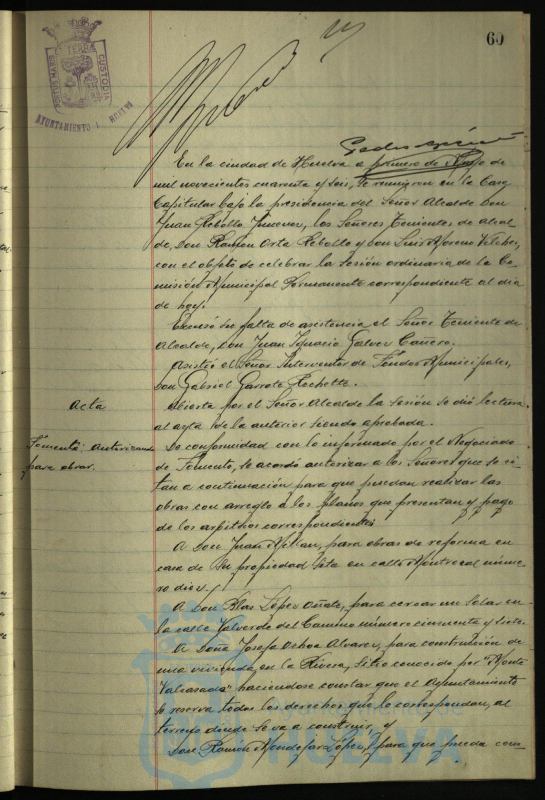 60
PORTUS MARIS ET TERRÆ CUSTODIA
AYUNTAMIENTO HUELVA
En la ciudad de Huelva a primero de Mayo de
mil novecientos cuarenta y seis, se reunieron en la Casa
Capitular bajo la presidencia del Señor Alcalde Don
Juan Rebollo Jimenez, los Señores Tenientes de alcal-
de, Don Ramon Orta Rebollo y Don Luis Moreno
con el objeto de celebrar la sesión ordinaria de la Co-
misión Municipal Permanente correspondiente al dia
de hoy.
Excusó su falta de asistencia el Señor Teniente de
Alcalde, Don Juan Ignacio Galvez Cañero.
Asistió el Señor Interventor de Fondos Municipales,
Don Gabriel Garrote Rochette.
acta
Abierta por el Señor Alcalde la sesión se dió lectura
al acta de la anterior siendo aprobada.
Fomento: autorizando
para obrar.
De conformidad con lo informado por el Negociado
de Fomento, se acordó autorizar a los Señores que se ci-
tan a continuación para que puedan realizar las
obras con arreglo a los planos que presentan y pago
de los arbitrios correspondientes
A Don Juan Millan, para obras de reforma en
casa de su propiedad sita en calle Monrocal núme-
ro diez.
A Don Blas López Oñate, para cercar un solar en
la calle Valverde del Camino número cincuenta y siete.
A Doña Josefa Ochoa Alvarez, para construcción de
una vivienda en la Rivera, sitio conocido por "Monte
haciendose constar que el Ayuntamiento
se reserva todos los derechos que le correspondan, al
terreno donde se va a construir, y
Don Ramón Mondejar López, para que pueda com-
HUELVA